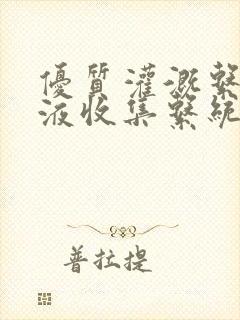 優質灌溉繫
液收集繫統
普拉提